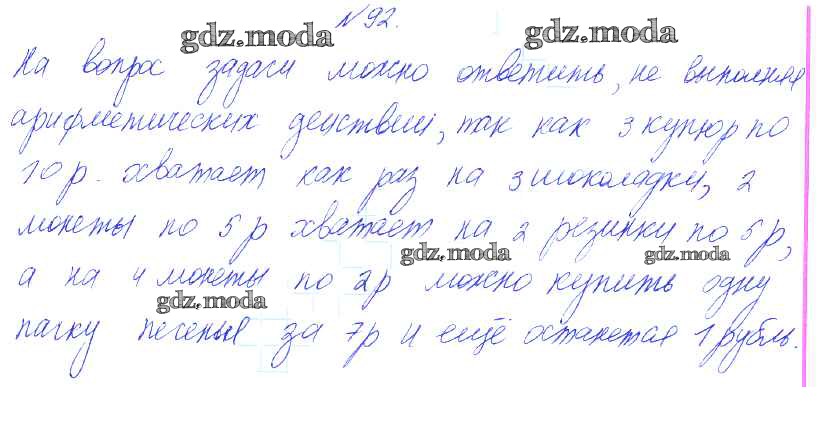 № 92.
gdz.moda gdz.moda
На вопрос задачи можно ответить, не выполняя
арифметических действий, так как 3 купюр по
10 р. хватает как раз на 3 шоколадки, 2
монеты по 5 р хватает на 2 резинки по 5 р,
gdz.moda gdz.moda
а на 4 монеты по 2р можно купить одну
gdz.moda
пачку печенья за 7р и ещё останется 1 рубль.